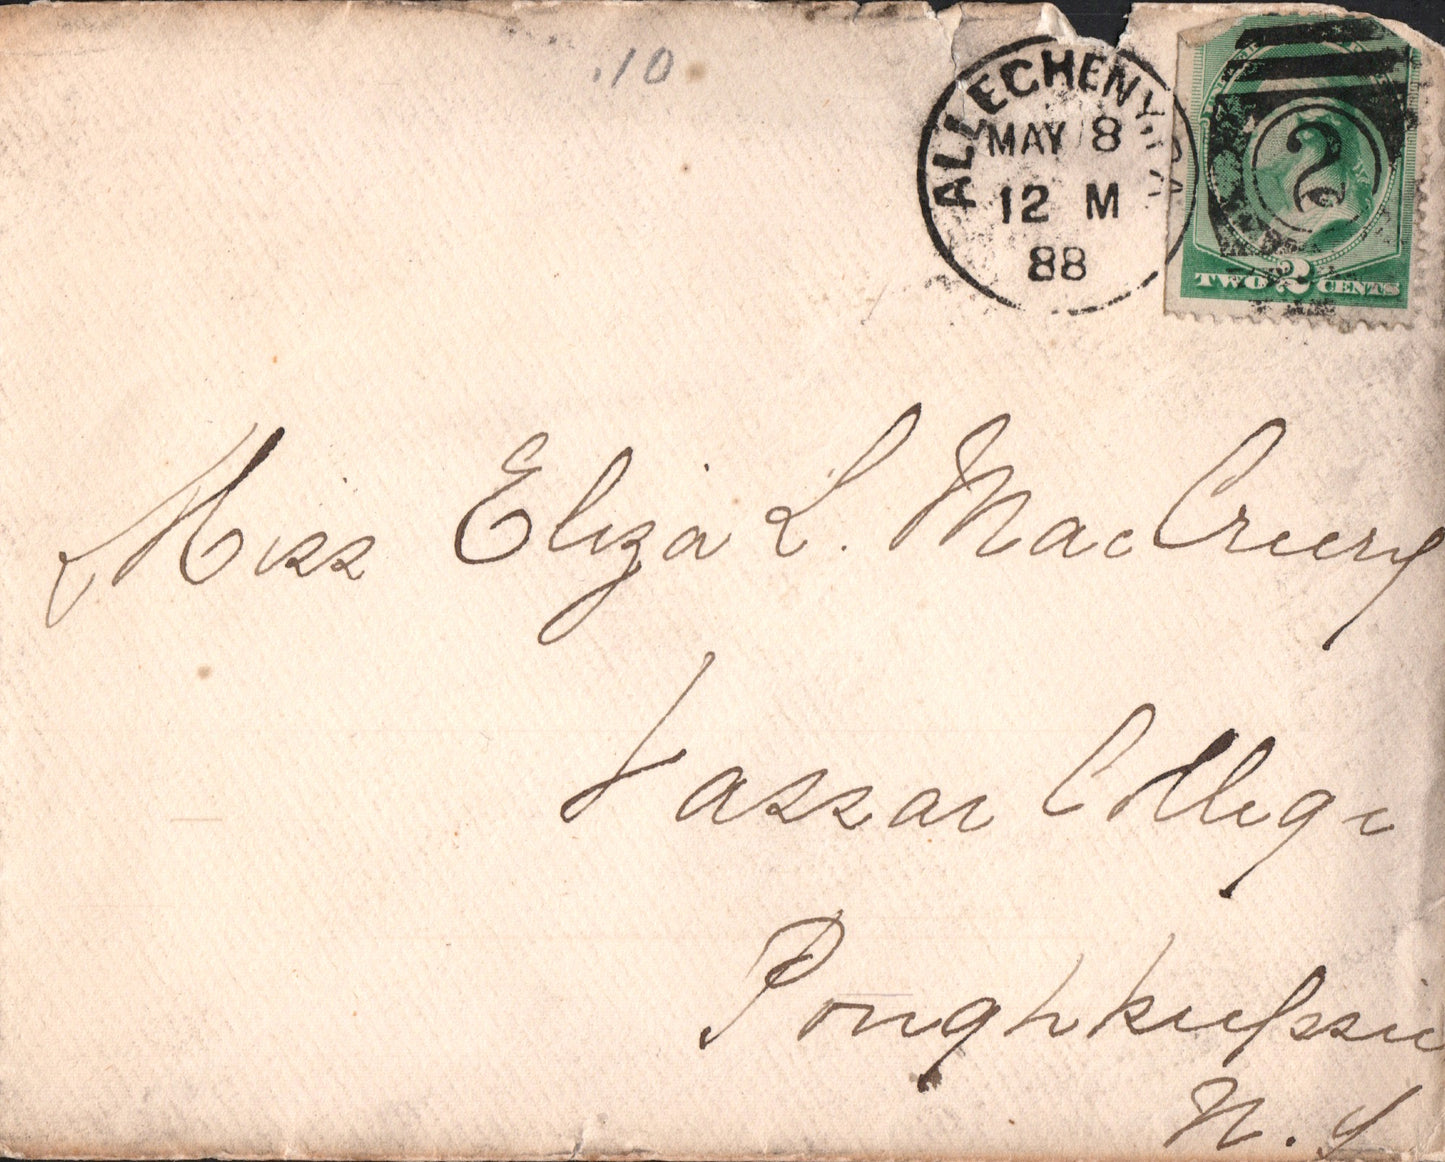 .10
ALLEGHENY, PA
MAY 8
12 M
88
2
TWO 2 CENTS
Miss Eliza L. MacCreery
Vassar College
Poughkeepsie
N.Y.